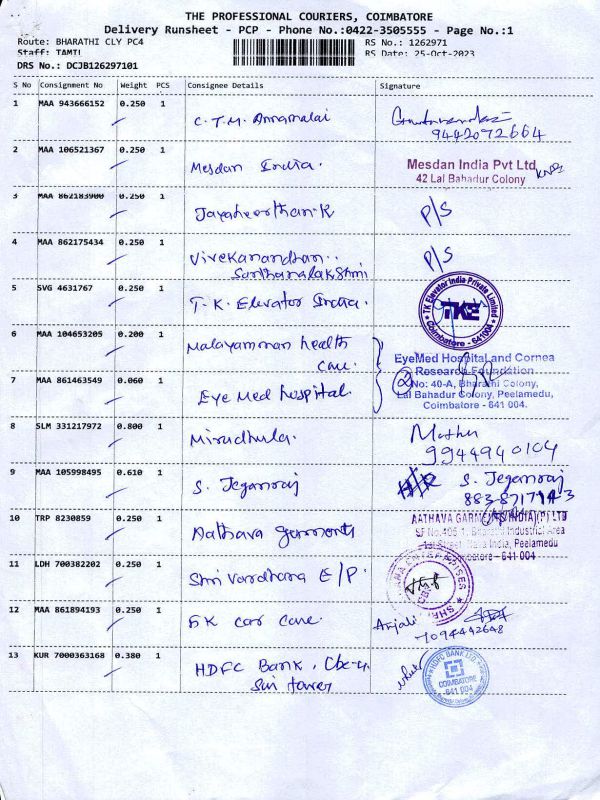 THE PROFESSIONAL COURIERS, COIMBATORE
Delivery Runsheet - PCP - Phone No.:0422-3505555 - Page No.:1
Route: BHARATHI CLY PC4 RS No.: 1262971
Staff: TAMIL RS Date: 25-Oct-2023
DRS No.: DCJB126297101
S No Consignment No Weight PCS Consignee Details Signature
1 MAA 943666152 0.250 1 C.T.M. Annamalai
9442072664
2 MAA 106521367 0.250 1 Mesdan India. Mesdan India Pvt Ltd
42 Lal Bahadur Colony
3 MAA 862183900 0.250 1 Jayaheerthan.K P/S
4 MAA 862175434 0.250 1 Vivekanandhan.. P/S
Santhanalakshmi
5 SVG 4631767 0.250 1 T.K. Elevator India. TK Elevator India Private Limited
TKE
Coimbatore - 641004
6 MAA 104653205 0.200 1 Malayamman health
care. EyeMed Hospital and Cornea
Research Foundation
7 MAA 861463549 0.060 1 Eye Med hospital. 2 No: 40-A, Bharathi Colony,
Lal Bahadur Colony, Peelamedu,
Coimbatore - 641 004.
8 SLM 331217972 0.800 1 Mirudhula. Mother
9944940104
9 MAA 105998495 0.610 1 S. Jeganraj S. Jeganraj
10 TRP 8230859 0.250 1 Aathava garments AATHAVA GARMENTS INDIA (P) LTD
SF No:405-1, Bharathi Industrial Area
1st Street, Nava India, Peelamedu
Coimbatore - 641 004
11 LDH 700382202 0.250 1 Shri Vardhara E/P. ENTERPRISES
12 MAA 861894193 0.250 1 F.K car care. Anjali
7094442648
13 KUR 7000363168 0.380 1 HDFC Bank, Cbe-4. HDFC BANK LTD
Sun tower COIMBATORE
641 004